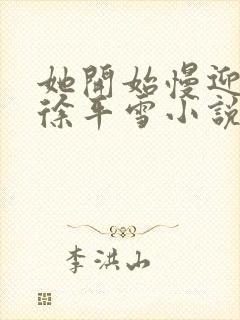 她開始慢迎
徐平雪小說
李洪山